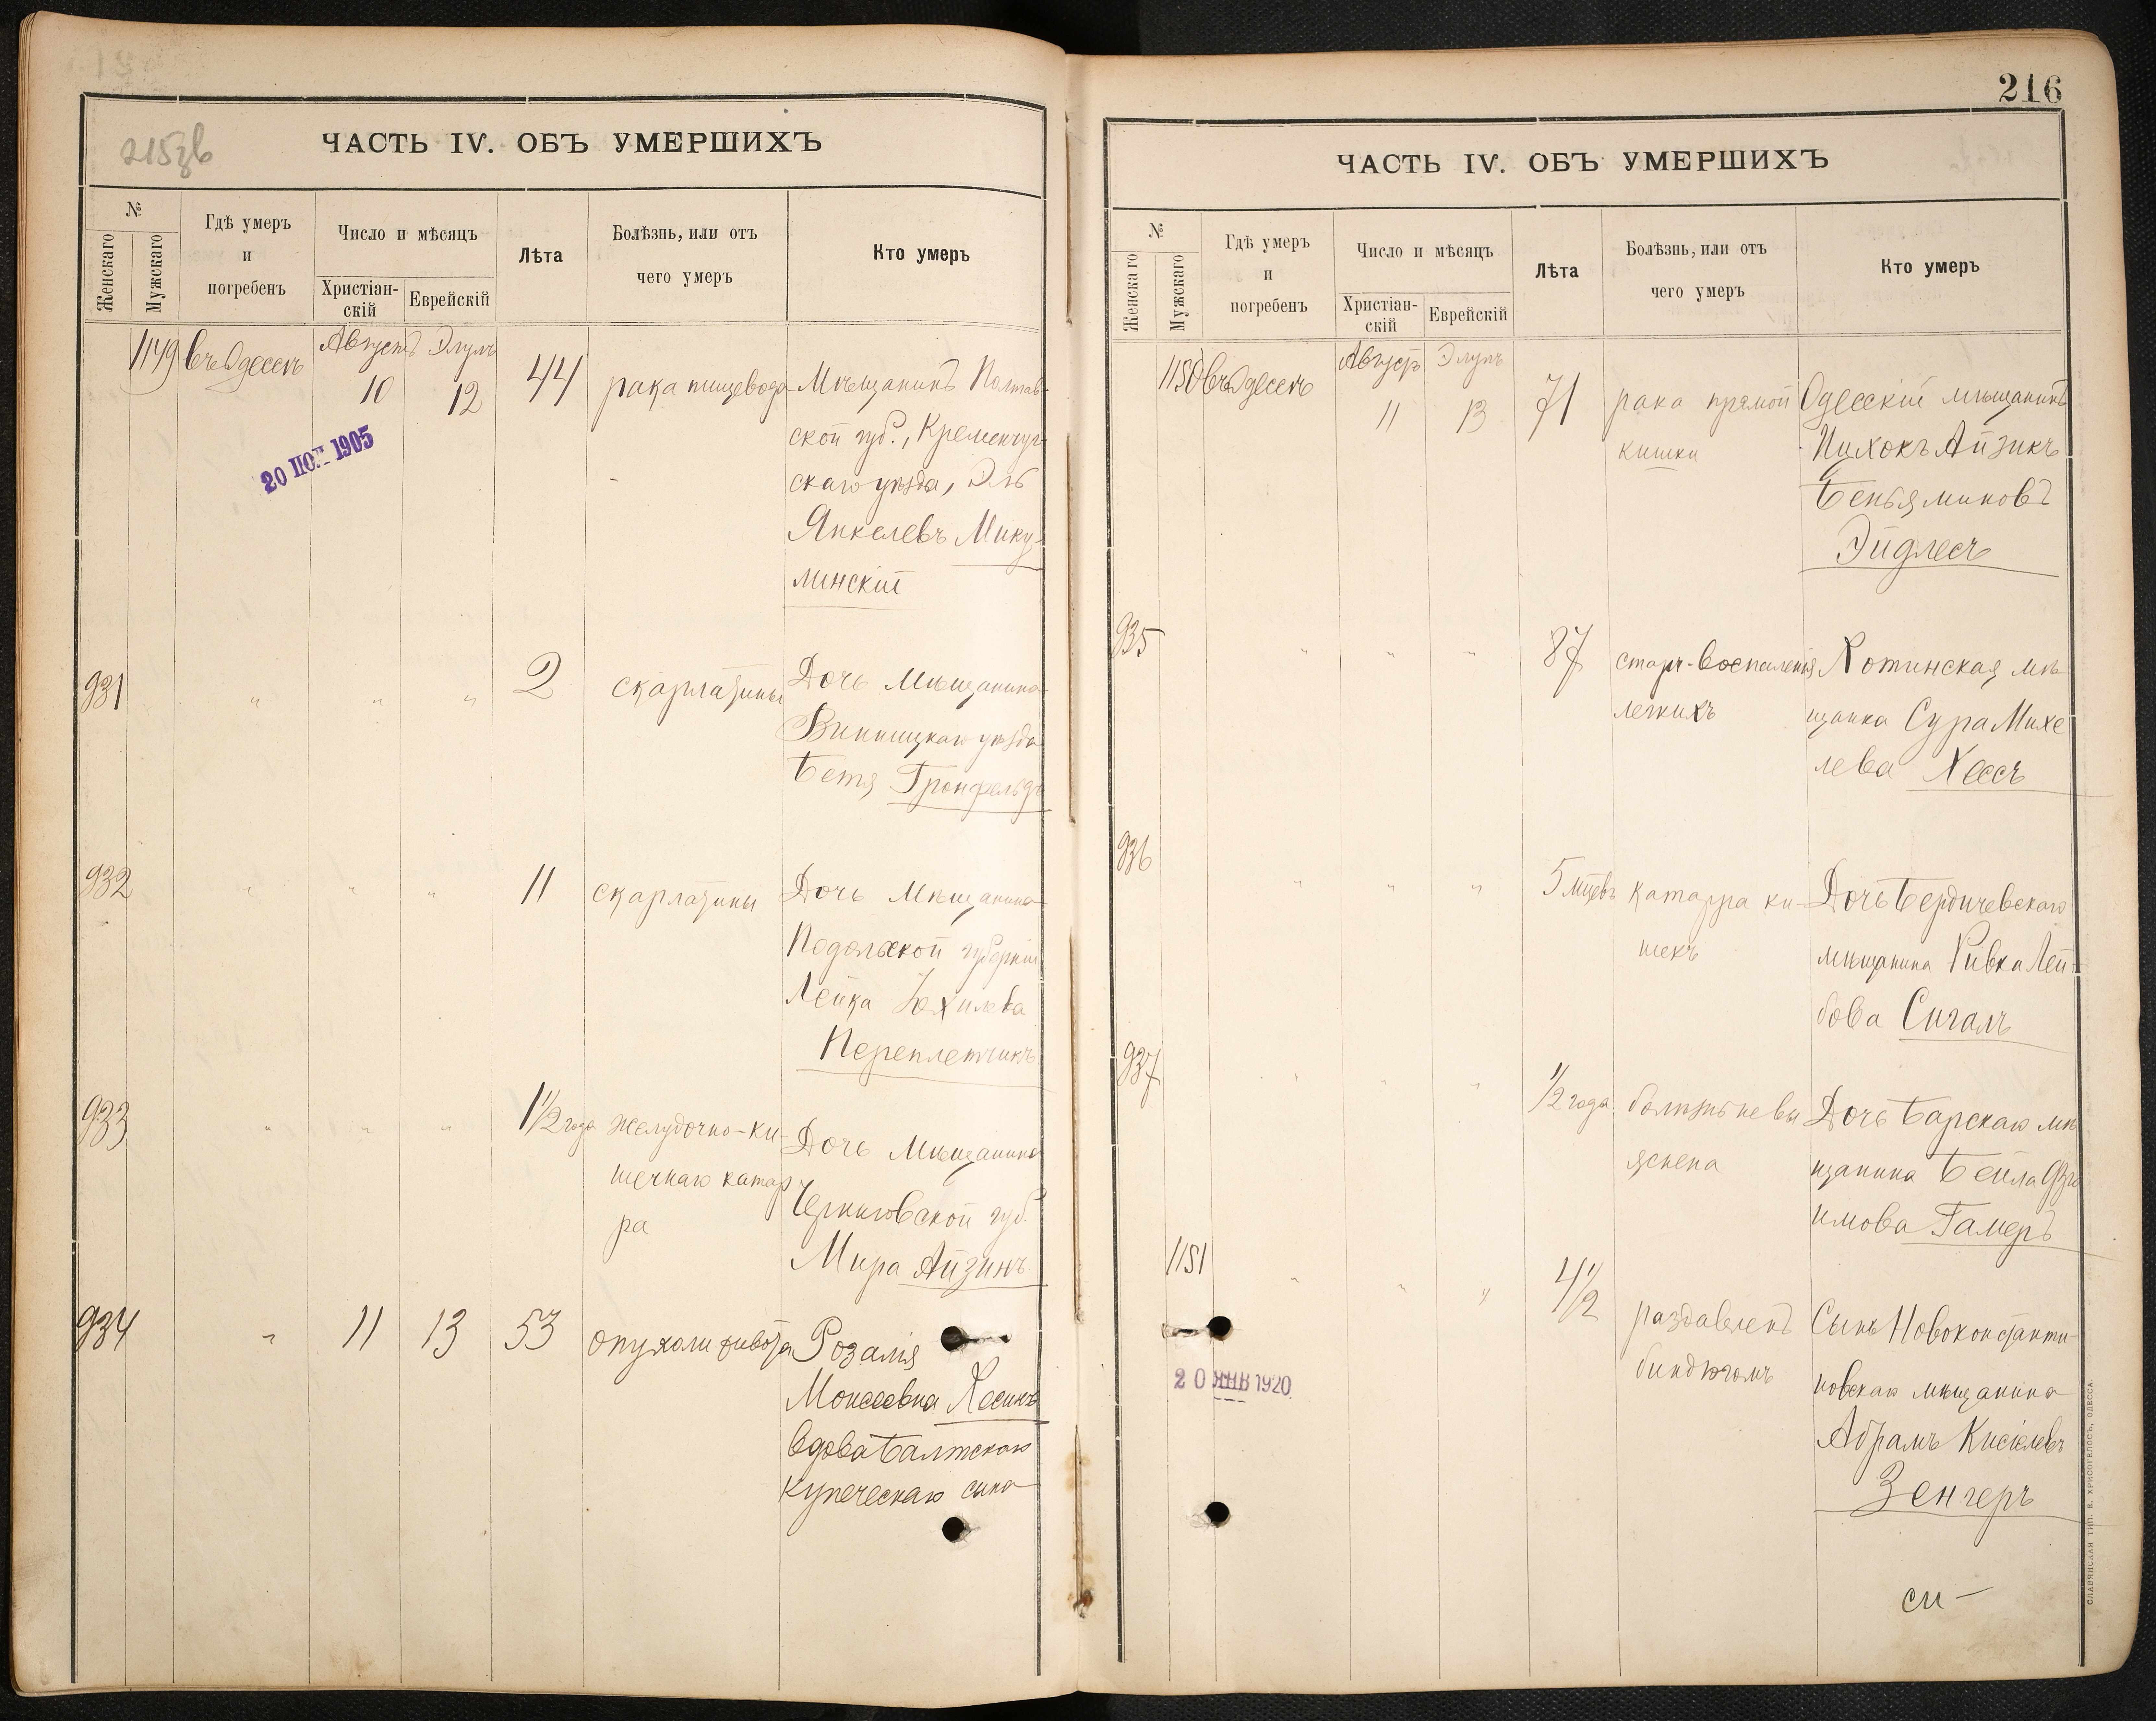 215зв
ЧАСТЬ IV. ОБЪ УМЕРШИХЪ
№
Женскаго
Мужскаго
Гдѣ умеръ
и
погребенъ
Число и мѣсяцъ
Христіан-
скій
Еврейскій
Лѣта
Болѣзнь, или отъ
чего умеръ
Кто умеръ
1149 въ Одессѣ Августъ Элулъ
10 12 44 рака пищевода Мѣщанинъ Полтав-
ской губ., Кременчуг-
скаго уѣзда,
Янкелевъ Мику-
линскій
20 1905
931 " " " 2 скарлатины Дочь мѣщанина
Винницкаго уѣзда
Бетя Гронфельдъ
932 " " " 11 скарлатины Дочь мѣщанина
Подольской губерніи
Лейка Юхилева
Переплетчикъ
933 " " " 1 1/2 года желудочно-ки-
шечнаго катар
ра
Дочь мѣщанина
Черниговской губ.
Мира Айзинъ
934 " 11 13 53 опухоли живота Розалія
Моисеевна Хесинъ
вдова Балтскаго
купеческаго сына
216
ЧАСТЬ IV. ОБЪ УМЕРШИХЪ
№
Женскаго
Мужскаго
Гдѣ умеръ
и
погребенъ
Число и мѣсяцъ
Христіан-
скій
Еврейскій
Лѣта
Болѣзнь, или отъ
чего умеръ
Кто умеръ
1150 въ Одессѣ Августъ Элулъ
11 13 71 рака прямой
кишки
Одесскій мѣщанинъ
Ицхокъ Айзикъ
Беньяминовъ
Эйдлесъ
935 " " " 87 старч. воспаленія
легкихъ
Хотинская мѣ-
щанка Сура Михе
лева Хессъ
936 " " " 5 мцевъ катарра ки-
шекъ
Дочь Бердичевскаго
мѣщанина Ривка Лей-
бова Сигалъ
937 " " " 1/2 года болѣзнь невы
яснена
Дочь Барскаго мѣ
щанина Бейла
имова Гамеръ
1151 " " " 4 1/2
раздавленъ
биндюгомъ
Сынъ Новоконстанти-
новскаго мѣщанина
Абрамъ Киселевъ
Зенгеръ
20 ЯНВ 1920
СЛАВЯНСКАЯ ТИП. Н. ХРИСОГЕЛОСЪ, ОДЕССА.